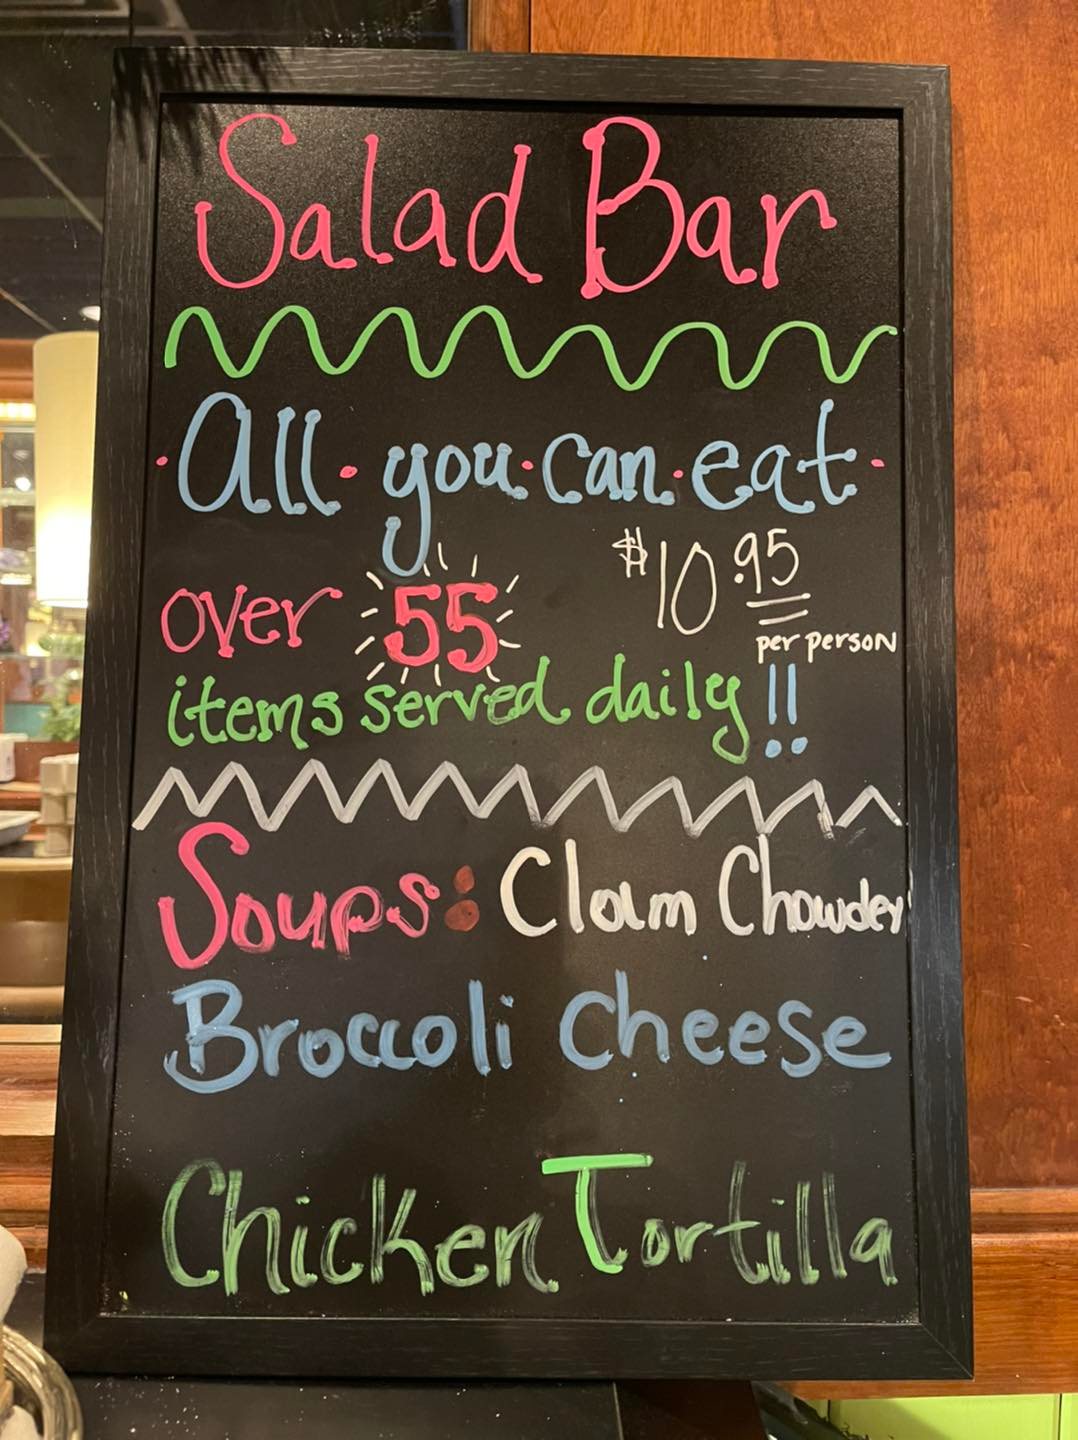 Salad Bar
All · you · can · eat
$10.95
per person
over 55
items served daily!!
Soups: Clam Chowder
Broccoli Cheese
Chicken Tortilla